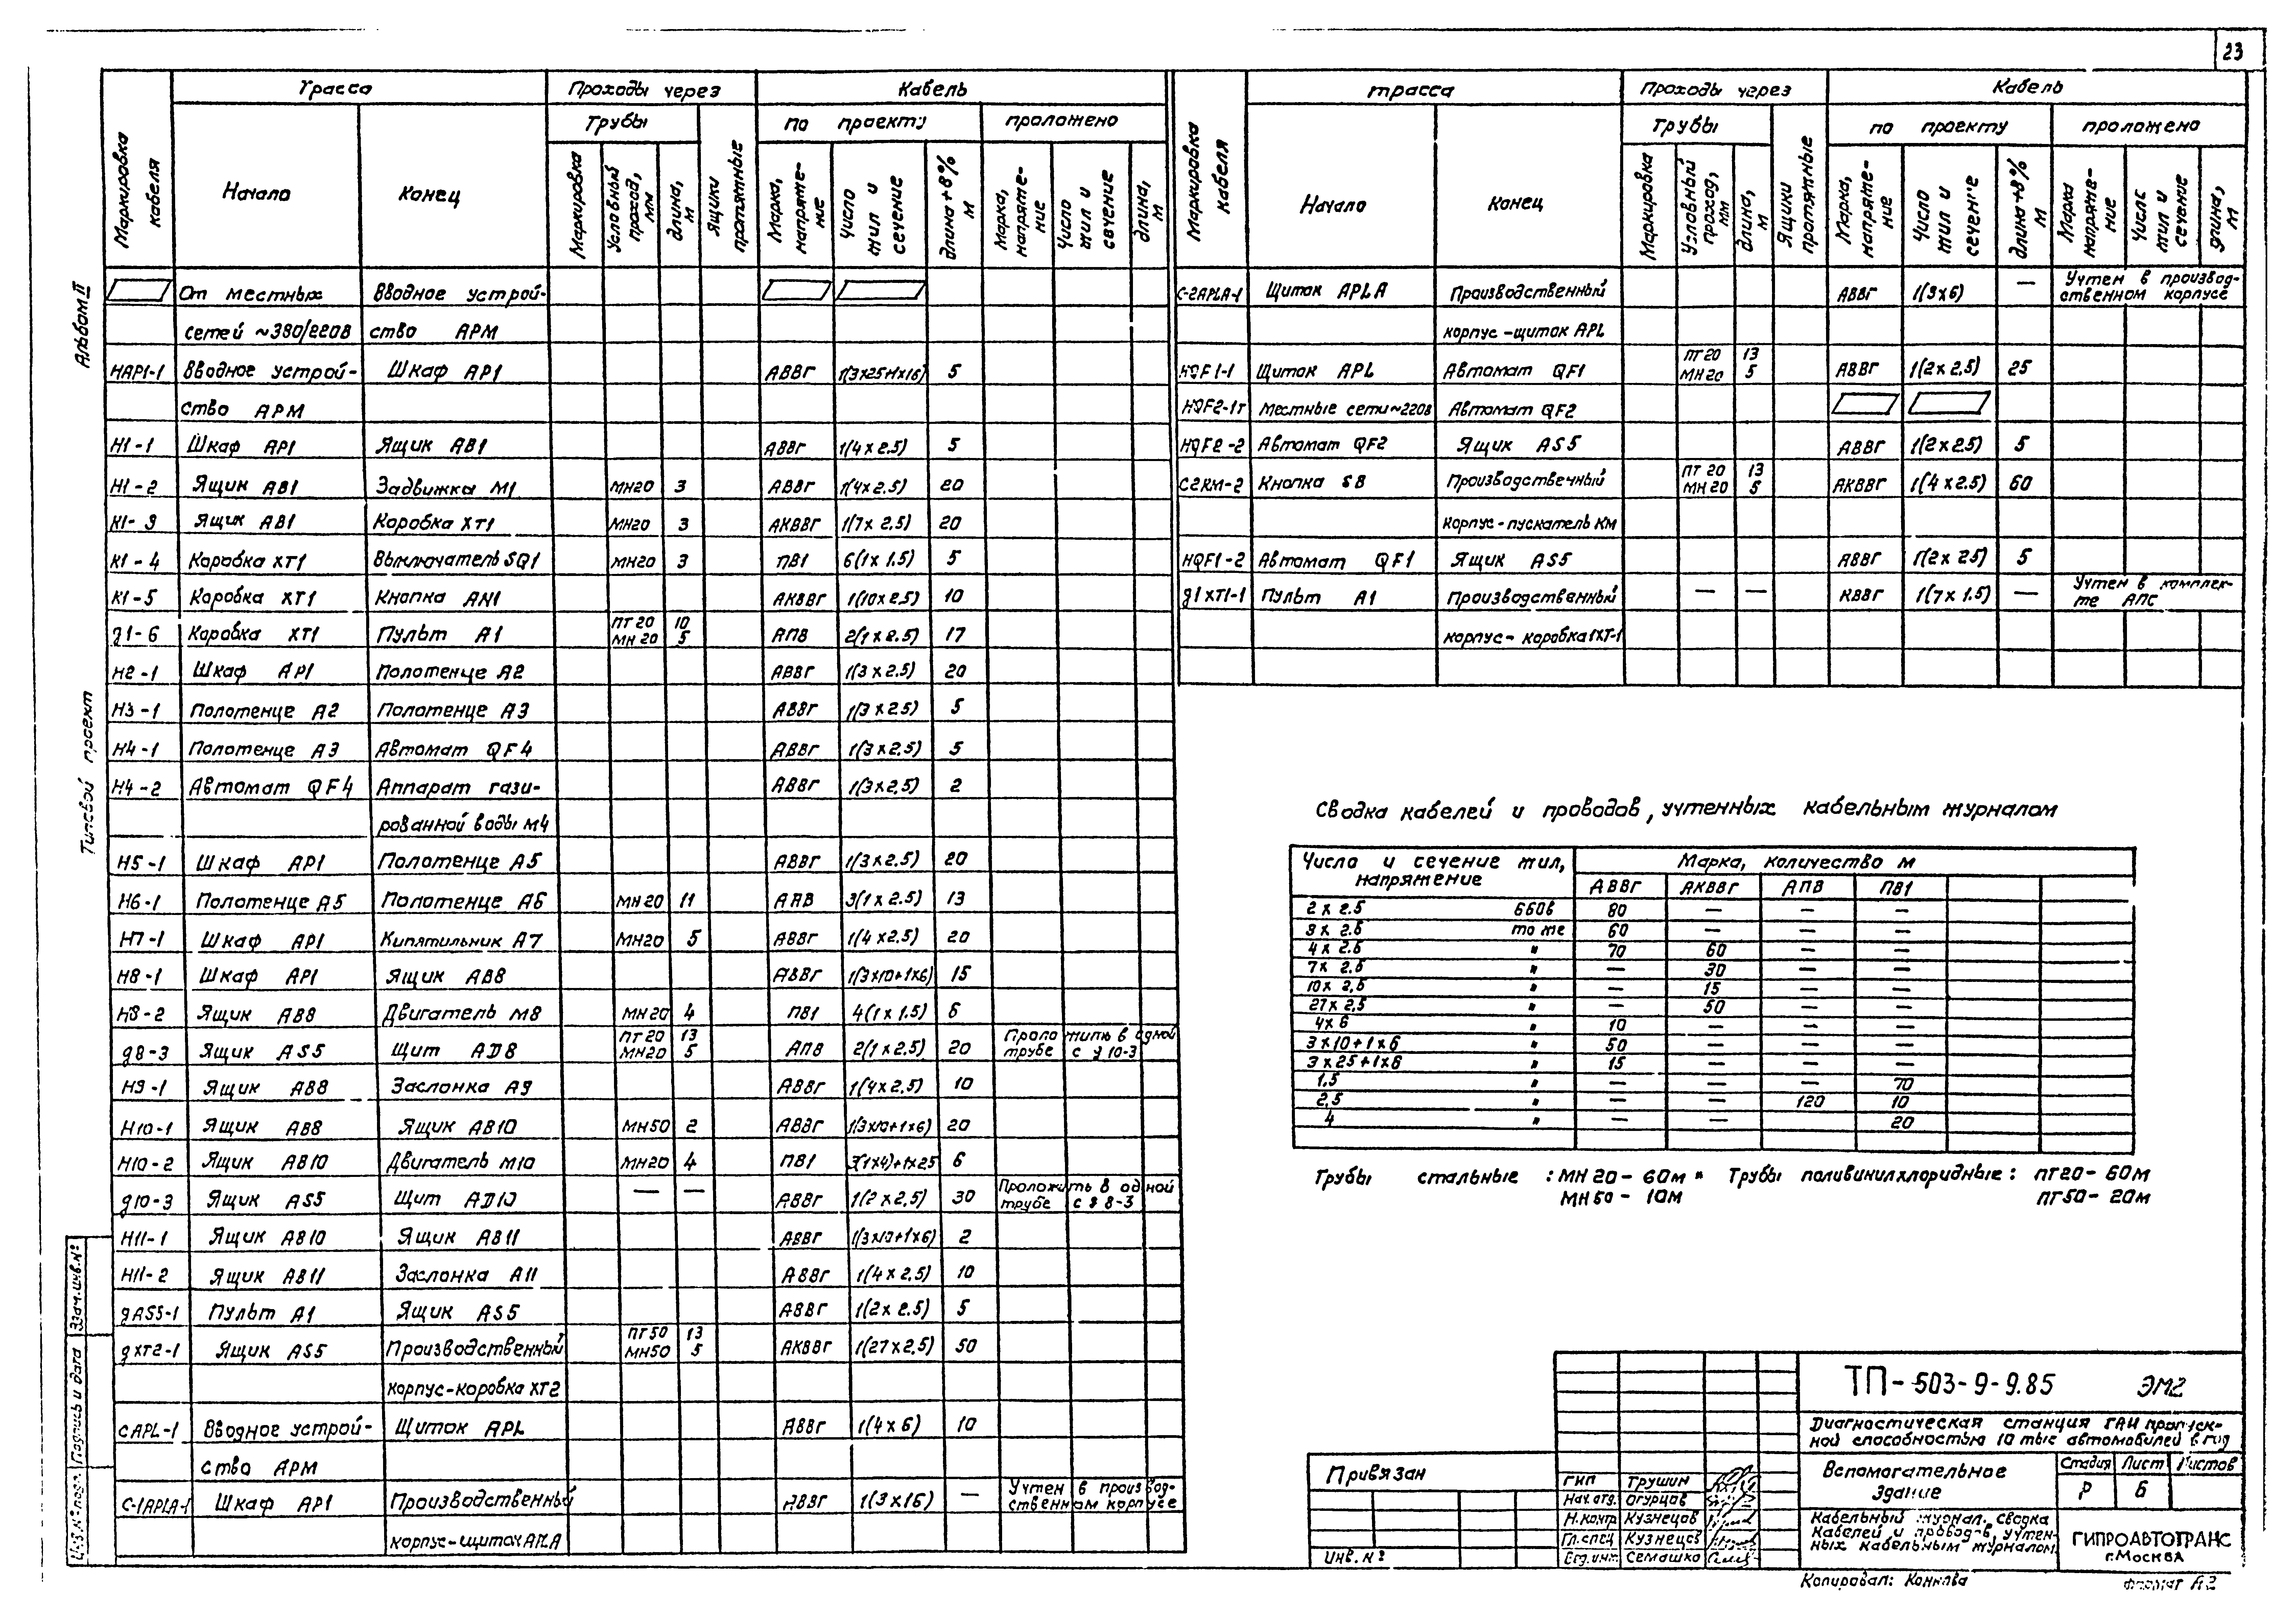 23
Альбом II
Типовой проект
Маркировка кабеля
Трасса
Проходы через
Кабель
Трубы
по проекту
проложено
Начало
Конец
Маркировка
Условный проход, мм
длина, м
Ящики протяжные
Марка, напряжение
Число жил и сечение
длина+8% м
Марка, напряжение
Число жил и сечение
длина, м
От местных Вводное устрой-
сетей ~380/220В ство АРМ
НАР1-1 Вводное устрой- Шкаф АР1 АВВГ 5
ство АРМ
Н1-1 Шкаф АР1 Ящик АВ1 АВВГ 1(4×2.5) 5
Н1-2 Ящик АВ1 Задвижка М1 МН20 3 АВВГ 1(4×2.5) 20
К1-3 Ящик АВ1 Коробка ХТ1 МН20 3 АКВВГ 1(7×2.5) 20
К1-4 Коробка ХТ1 Выключатель SQ1 МН20 3 ПВ1 6(1×1.5) 5
К1-5 Коробка ХТ1 Кнопка АН1 АКВВГ 1(10×2.5) 10
ПТ20 10
g1-6 Коробка ХТ1 Пульт А1 МН20 5 АПВ 2(1×2.5) 17
Н2-1 Шкаф АР1 Полотенце А2 АВВГ 1(3×2.5) 20
Н3-1 Полотенце А2 Полотенце А3 АВВГ 1(3×2.5) 5
Н4-1 Полотенце А3 Автомат QF4 АВВГ 1(3×2.5) 5
Н4-2 Автомат QF4 Аппарат гази- АВВГ 1(3×2,5) 2
рованной воды М4
Н5-1 Шкаф АР1 Полотенце А5 АВВГ 1(3×2.5) 20
Н6-1 Полотенце А5 Полотенце А6 МН20 11 АПВ 3(1×2.5) 13
Н7-1 Шкаф АР1 Кипятильник А7 МН20 5 АВВГ 1(4×2.5) 20
Н8-1 Шкаф АР1 Ящик АВ8 АВВГ 1(3×10+1×6) 15
Н8-2 Ящик АВ8 Двигатель М8 МН20 4 ПВ1 4(1×1.5) 6
ПТ20 13 Проложить в одной
g8-3 Ящик АS5 Щит АD8 МН20 5 АПВ 2(1×2.5) 20 трубе с g 10-3
Н9-1 Ящик АВ8 Заслонка А9 АВВГ 1(4×2,5) 10
Н10-1 Ящик АВ8 Ящик АВ10 МН50 2 АВВГ 1(3×10+1×6) 20
Н10-2 Ящик АВ10 Двигатель М10 МН20 4 ПВ1 3(1×4)+1×2.5 6
Проложить в одной
g10-3 Ящик АS5 Щит АD10 — — АВВГ 1(2×2,5) 30 трубе с g 8-3
Н11-1 Ящик АВ10 Ящик АВ11 АВВГ 1(3×10+1×6) 2
Н11-2 Ящик АВ11 Заслонка А11 АВВГ 1(4×2,5) 10
gAS5-1 Пульт А1 Ящик АS5 АВВГ 1(2×2.5) 5
ПТ50 13
gХТ2-1 Ящик АS5 Производственный МН50 5 АКВВГ 1(27×2,5) 50
корпус-коробка ХТ2
САРL-1 Вводное устрой- Щиток АРL АВВГ 1(4×6) 10
ство АРМ
С-1АРLА-1 Шкаф АР1 Производственный АВВГ 1(3×16) — Учтен в производ-
ственном корпусе
корпус-щиток АРLА
Маркировка кабеля
трасса
Проходы через
Кабель
Трубы
по проекту
проложено
Начало
Конец
Маркировка
Условный проход, мм
длина, м
Ящики протяжные
Марка, напряжение
Число жил и сечение
длина+8% м
Марка напряжение
Число жил и сечение
длина, м
С-2АРLА-1 Щиток АРLА Производственный АВВГ 1(3×6) — Учтен в производ-
ственном корпусе
корпус-щиток АРL
ПТ20 13
НQF1-1 Щиток АРL Автомат QF1 МН20 5 АВВГ 1(2×2,5) 25
НQF2-1т Местные сети~220В Автомат QF2
НQF2-2 Автомат QF2 Ящик АS5 АВВГ 1(2×2.5) 5
ПТ20 13
С2КМ-2 Кнопка SВ Производственный МН20 5 АКВВГ 1(4×2.5) 60
корпус-пускатель КМ
НQF1-2 Автомат QF1 Ящик АS5 АВВГ 1(2×2.5) 5
g1ХТ1-1 Пульт А1 Производственный — — КВВГ 1(7×1.5) — Учтен в комплек-
те АПС
корпус-коробка 1ХТ-1
Сводка кабелей и проводов, учтенных кабельным журналом
Число и сечение жил, напряжение
Марка, количество м
АВВГ АКВВГ АПВ ПВ1
2×2.5 660в 80 — — —
3×2.5 то же 60 — — —
4×2.5 " 70 60 — —
7×2.5 " — 30 — —
10×2,5 " — 15 — —
27×2,5 " — 50 — —
4×6 " 10 — — —
3×10+1×6 " 50 — — —
3×25+1×6 " 15 — — —
1,5 " — — — 70
2,5 " — — 120 10
4 " — — 20
Трубы стальные: МН20-60м Трубы поливинилхлоридные: ПТ20-60м
МН50-10м ПТ50-20м
ТП-503-9-9.85 ЭМ2
Диагностическая станция ГАИ пропуск-
ной способностью 10 тыс автомобилей в год
Вспомогательное здание
Стадия Лист Листов
Р 6
Кабельный журнал. сводка
кабелей и проводов, учтен-
ных кабельным журналом
ГИПРОАВТОТРАНС
г.Москва
Привязан
Инв.№
ГИП Трушин
Нач.отд. Огурцов
Н.контр Кузнецов
Гл.спец Кузнецов
Вед.инж. Семашко
Взам.инв.№
Подпись и дата
Инв.№ подл.
Копировал:
Формат А2